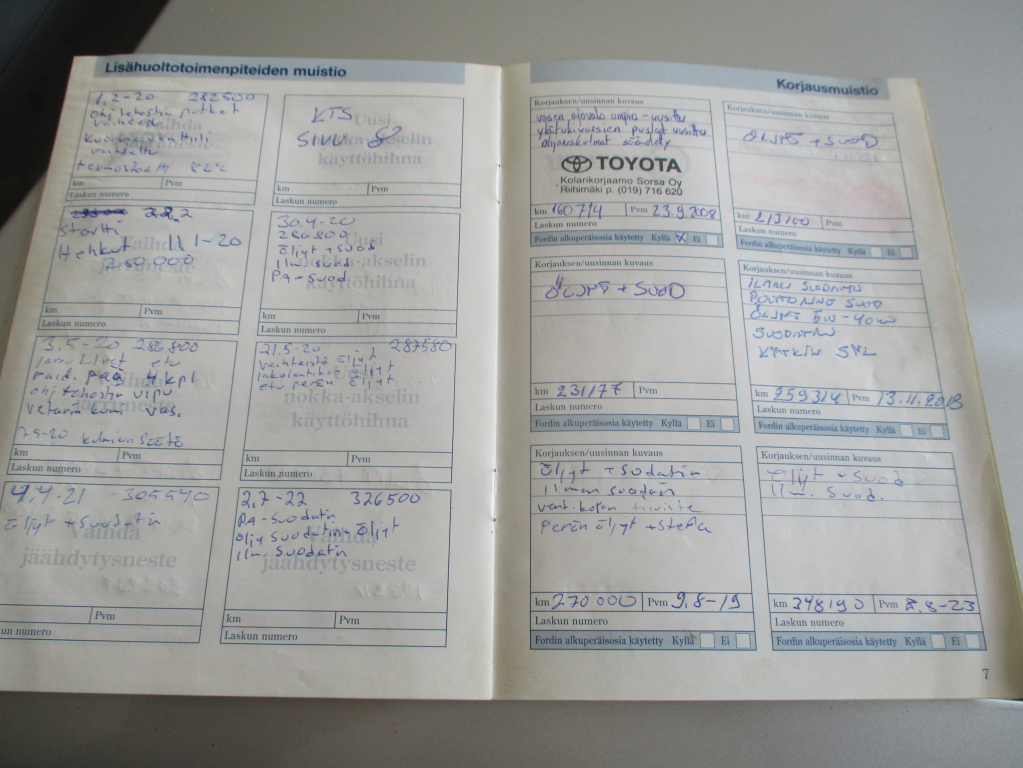 Lisähuoltotoimenpiteiden muistio
1.2-20 282500
ohj.tehostin putket
vaihda
termostaatti 82°c
km Pvm
Laskun numero
KTS
SIVU 8
Uusi
nokka-akselin
käyttöhihna
km Pvm
Laskun numero
28.2
startti
Hehkut 11.1-20
280.000
Vaihda
jäähdytysneste
km Pvm
Laskun numero
30.4-20
286800
öljyt + suod
Ilm. suod
PA-suod
Uusi
nokka-akselin
käyttöhihna
km Pvm
Laskun numero
3.5-20 286800
jarrulevyt etu
raid. pää 4 kpl
ohj.tehostin
vas.
7.5-20
km Pvm
Laskun numero
21.5-20 287580
vaihteisto öljyt
jakolaatikko öljyt
etu perän öljyt
nokka-akselin
käyttöhihna
km Pvm
Laskun numero
4.4-21 305540
öljyt + suodatin
Vaihda
jäähdytysneste
Pvm
Laskun numero
2.7-22 326500
PA-suodatin
öljy suodatin + öljyt
ilm. suodatin
Vaihda
jäähdytysneste
km Pvm
Laskun numero
Korjausmuistio
Korjauksen/uusinnan kuvaus
vasen ajovalo umpio-uusittu
ylätukivarsien puslat uusittu
ohjauskulmat säädetty
TOYOTA
Kolarikorjaamo Sorsa Oy
Riihimäki p. (019) 716 620
km 160714 Pvm 23.9.2008
Laskun numero
Fordin alkuperäisosia käytetty Kyllä X Ei
Korjauksen/uusinnan kuvaus
ÖLJYT + SUOD
km 213100 Pvm
Laskun numero
Fordin alkuperäisosia käytetty Kyllä Ei
Korjauksen/uusinnan kuvaus
ÖLJYT + SUOD
km 231177 Pvm
Laskun numero
Fordin alkuperäisosia käytetty Kyllä Ei
Korjauksen/uusinnan kuvaus
ILMAN SUODATIN
SUOD
ÖLJYT 5W-40
SUODATIN
km 259314 Pvm 13.11.2018
Laskun numero
Fordin alkuperäisosia käytetty Kyllä Ei
Korjauksen/uusinnan kuvaus
öljyt + suodatin
ilman suodatin
vent.kopan tiiviste
perän öljyt + stefa
km 270000 Pvm 9.8-19
Laskun numero
Fordin alkuperäisosia käytetty Kyllä Ei
Korjauksen/uusinnan kuvaus
öljyt + suod
Ilm. suod.
km 348190 Pvm 8.8-23
Laskun numero
Fordin alkuperäisosia käytetty Kyllä Ei
7